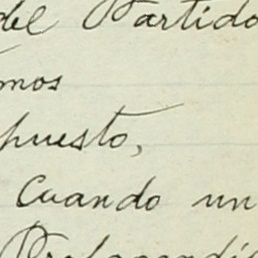 del Partido
mos
puesto,
Cuando un